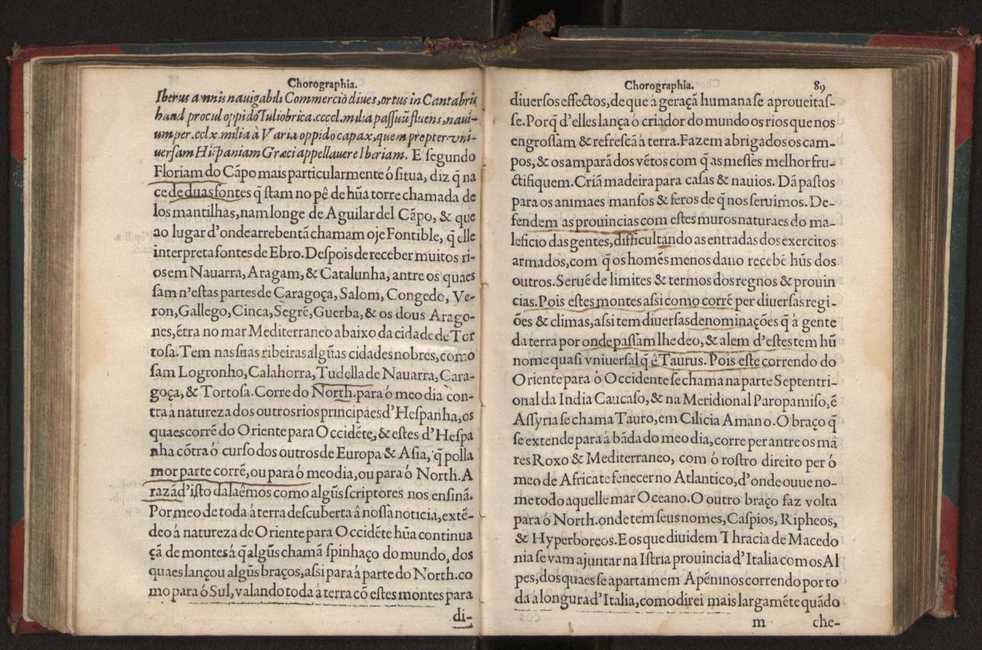 Chorographia.
Iberus amnis nauigabili Commercio diues, ortus in Cantabris
haud procul oppido Iuliobrica. ccccl. milia passuũ fluens, naui-
um per. cclx. milia à Varia oppido capax, quem propter vni-
uersam Hispaniam Græci appellauere Iberiam. E segundo
Floriam do Cãpo mais particularmente ó situa, diz q̃ na
ce de duas fontes q̃ stam no pê de hũa torre chamada de
los mantilhas, nam longe de Aguilar del Cãpo, & que
ao lugar d'onde arrebentã chamam oje Fontible, q̃ elle
interpreta fontes de Ebro. Despois de receber muitos ri-
os em Nauarra, Aragam, & Catalunha, antre os quaes
sam n'estas partes de Caragoça, Salom, Congedo, Ve-
ron, Gallego, Cinca, Segrê, Guerba, & os dous Arago-
nes, ẽtra no mar Mediterraneo abaixo da cidade de Tor
tosa. Tem nas suas ribeiras algũas cidades nobres, como
sam Logronho, Calahorra, Tudella de Nauarra, Cara-
goça, & Tortosa. Corre do North. para ó meo dia con-
tra à natureza dos outros rios principaes d'Hespanha, os
quaes corrẽ do Oriente para Occidẽte, & estes d'Hespa
nha cõtra ó curso dos outros de Europa & Asia, q̃ polla
mor parte corrẽ, ou para ó meo dia, ou para ó North. A
razã d'isto dalaẽmos como algũs scriptores nos ensinã.
Por meo de toda à terra descuberta à nossa noticia, extẽ-
deo à natureza de Oriente para Occidẽte hũa continua
çã de montes á q̃ algũs chamã spinhaço do mundo, dos
quaes lançou algũs braços, assi para á parte do North. co
mo para ó Sul, valando toda à terra cõ estes montes para
di-
Chorographia. 89
diuersos effectos, de que à geraçã humana se aproueitas-
se. Porq̃ d'elles lança o criador do mundo os rios que nos
engrossam & refrescã à terra. Fazem abrigados os cam-
pos, & os amparã dos vẽtos com q̃ as messes melhor fru-
ctifiquem. Criã madeira para casas & nauios. Dã pastos
para os animaes mansos & feros de q̃ nos seruimos. De-
fendem as prouincias com estes muros naturaes do ma-
leficio das gentes, difficultando as entradas dos exercitos
armados, com q̃ os homẽs menos dano recebẽ hũs dos
outros. Seruẽ de limites & termos dos regnos & prouin
cias. Pois estes montes assi como corrẽ per diuersas regi-
ões & climas, assi tem diuersas denominações q̃ à gente
da terra por onde passam lhe deo, & alem d'estes tem hũ
nome quasi vniuersal q̃ ẽ Taurus. Pois este correndo do
Oriente para ó Occidente se chama na parte Septentri-
onal da India Caucaso, & na Meridional Paropamiso, ẽ
Assyria se chama Tauro, em Cilicia Amano. O braço q̃
se extende para á bãda do meo dia, corre per antre os ma
res Roxo & Mediterraneo, com ó rostro direito per ó
meo de Africa te fenecer no Atlantico, d'onde ouue no-
me todo aquelle mar Oceano. O outro braço faz volta
para ó North. onde tem seus nomes, Caspios, Ripheos,
& Hyperboreos. E os que diuidem Thracia de Macedo
nia se vam ajuntar na Istria prouincia d'Italia com os Al
pes, dos quaes se apartam em Apẽninos correndo por to
da à longura d'Italia, como direi mais largamẽte quãdo
m che-